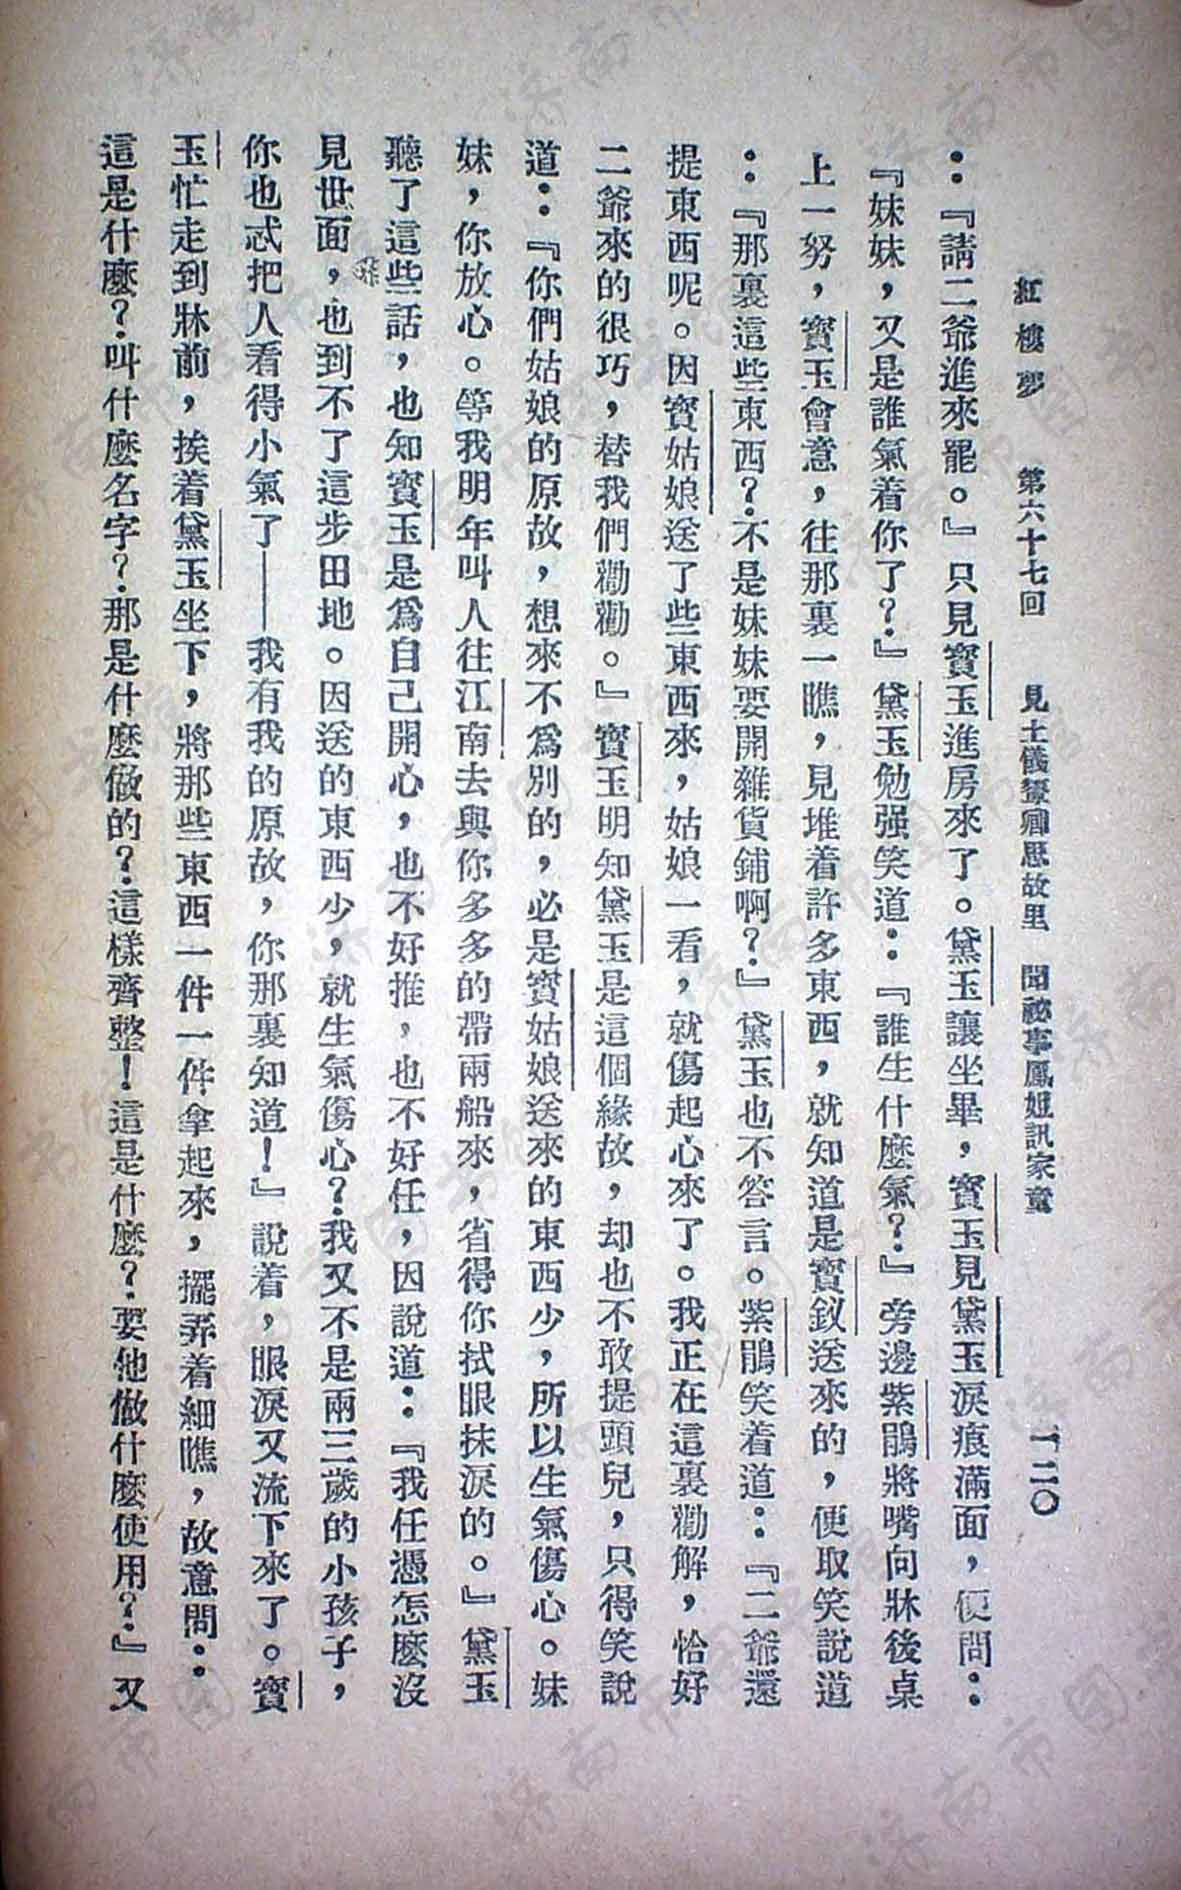 紅樓夢 第六十七回 見土儀顰卿思故里 聞祕事鳳姐訊家童 一二〇
：『請二爺進來罷。』只見寶玉進房來了。黛玉讓坐畢，寶玉見黛玉淚痕滿面，便問：
『妹妹，又是誰氣着你了？』黛玉勉强笑道：『誰生什麼氣？』旁邊紫鵑將嘴向牀後桌
上一努，寶玉會意，往那裏一瞧，見堆着許多東西，就知道是寶釵送來的，便取笑說道
：『那裏這些東西？不是妹妹要開雜貨鋪啊？』黛玉也不答言。紫鵑笑着道：『二爺還
提東西呢。因寶姑娘送了些東西來，姑娘一看，就傷起心來了。我正在這裏勸解，恰好
二爺來的很巧，替我們勸勸。』寶玉明知黛玉是這個緣故，却也不敢提頭兒，只得笑說
道：『你們姑娘的原故，想來不爲別的，必是寶姑娘送來的東西少，所以生氣傷心。妹
妹，你放心。等我明年叫人往江南去與你多多的帶兩船來，省得你拭眼抹淚的。』黛玉
聽了這些話，也知寶玉是爲自己開心，也不好推，也不好任，因說道：『我任憑怎麼沒
見世面，也到不了這步田地。因送的東西少，就生氣傷心？我又不是兩三歲的小孩子，
你也忒把人看得小氣了——我有我的原故，你那裏知道！』說着，眼淚又流下來了。寶
玉忙走到牀前，挨着黛玉坐下，將那些東西一件一件拿起來，擺弄着細瞧，故意問：
這是什麼？叫什麼名字？那是什麼做的？這樣齊整！這是什麼？要他做什麼使用？』又